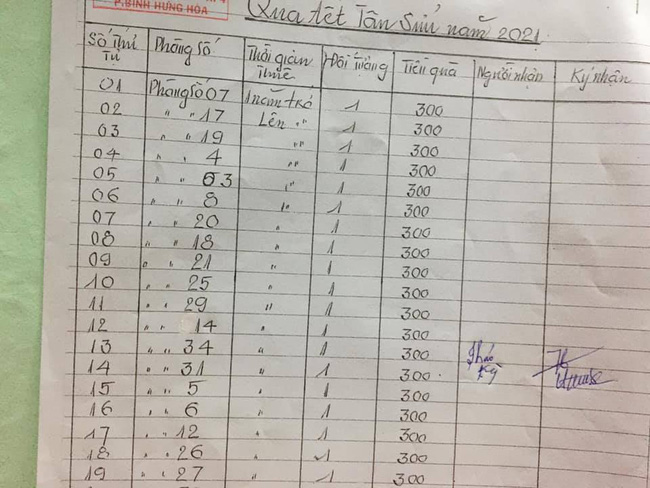 P.BÌNH HƯNG HÒA
Quà tết Tân Sửu năm 2021
Số Thứ Tự Phòng số Thời gian Thuê Đối tượng Tiền quà Người nhận Ký nhận
01 Phòng số 07 1 năm trở Lên 1 300
02 " " 17 " 1 300
03 " " 19 " 1 300
04 " " 4 " 1 300
05 " " 63 " 1 300
06 " " 8 " 1 300
07 " " 20 " 1 300
08 " " 18 " 1 300
09 " " 21 " 1 300
10 " " 25 " 1 300
11 " " 29 " 1 300
12 " " 14 " 1 300
13 " " 34 " 1 300
14 " " 31 " 1 300
15 " " 5 " 1 300
16 " " 6 " 1 300
17 " " 12 " 1 300
18 " " 26 " 1 300
19 " " 27 " 1 300